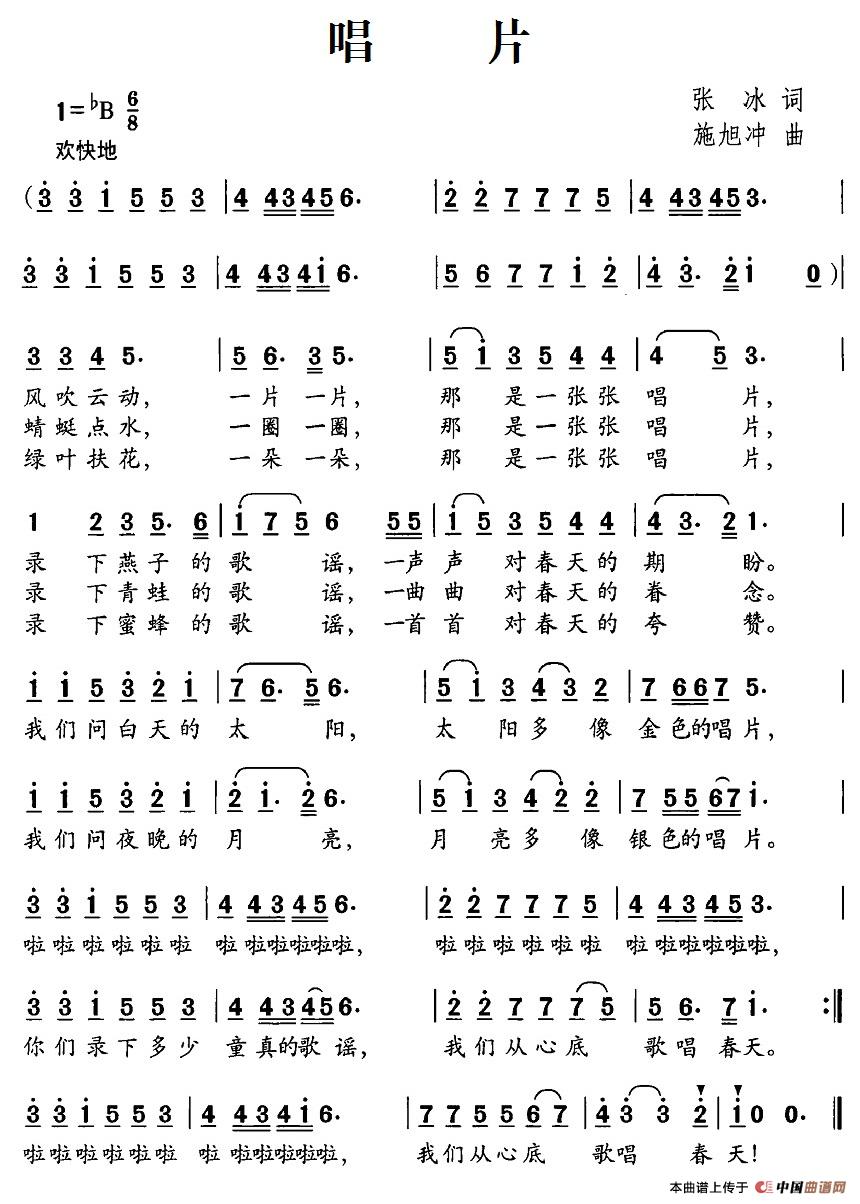 唱 片
1=♭B 6/8
张 冰 词
欢快地
施旭冲 曲
(3 3 1 5 5 3 | 4 4 3 4 5 6. | 2 2 7 7 7 5 | 4 4 3 4 5 3. |
3 3 1 5 5 3 | 4 4 3 4 1 6. | 5 6 7 7 1 2 | 4 3. 2 1 0 )|
3 3 4 5. | 5 6. 3 5. | 5 1 3 5 4 4 | 4 5 3. |
风吹云动， 一片 一片， 那 是一张张 唱 片，
蜻蜓点水， 一圈 一圈， 那 是一张张 唱 片，
绿叶扶花， 一朵 一朵， 那 是一张张 唱 片，
1 2 3 5. 6 | 1 7 5 6 5 5 | 1 5 3 5 4 4 | 4 3. 2 1. |
录 下燕子的歌 谣，一声声 对春天的期 盼。
录 下青蛙的歌 谣，一曲曲 对春天的眷 念。
录 下蜜蜂的歌 谣，一首首 对春天的夸 赞。
1 1 5 3 2 1 | 7 6. 5 6. | 5 1 3 4 3 2 | 7 6 6 7 5. |
我们问白天的太 阳， 太 阳多 像 金色的唱片，
1 1 5 3 2 1 | 2 1. 2 6. | 5 1 3 4 2 2 | 7 5 5 6 7 1. |
我们问夜晚的月 亮， 月 亮多 像 银色的唱片。
3 3 1 5 5 3 | 4 4 3 4 5 6. | 2 2 7 7 7 5 | 4 4 3 4 5 3. |
啦啦啦啦啦啦 啦 啦啦啦啦啦， 啦啦啦啦啦啦 啦 啦啦啦啦啦，
3 3 1 5 5 3 | 4 4 3 4 5 6. | 2 2 7 7 7 5 | 5 6. 7 1. :‖
你们录下多少 童真的歌谣， 我们从心底 歌唱 春天。
3 3 1 5 5 3 | 4 4 3 4 1 6. | 7 7 5 5 6 7 | 4 3 3 2 | 1 0 0. ‖
啦啦啦啦啦啦 啦 啦啦啦啦啦， 我们从心底 歌唱 春 天！
本曲谱上传于 中国曲谱网